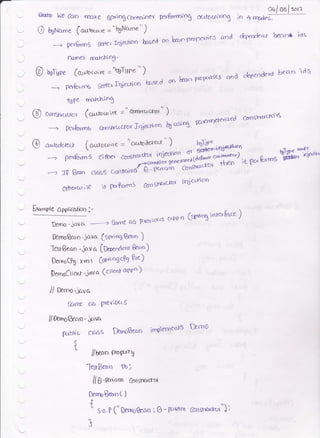 04/05/2012
Note: We can make spring container performing autowiring in 4 modes.
① byName (autowire = "byName")
→ performs setter Injection based on bean properties and dependent bean ids
names matching.
② byType (autowire = "byType")
→ performs setter Injection based on bean properties and dependent bean ids
type matching
③ constructor (autowire = "constructor")
→ performs constructor Injection by using parameterized constructors
④ autodetect (autowire = "autodetect")
→ performs either constructor injection or byType
→ If Bean class contains 0-param constructor then it performs
otherwise it performs constructor injection
Example application :-
Demo.java → Same as previous appn (spring interface)
DemoBean.java (spring Bean)
TestBean.java (Dependent Bean)
DemoCfg.xml (spring cfg file)
DemoClient.java (client appn)
// Demo.java
Same as previous
//DemoBean.java
public class DemoBean implements Demo
{
//bean property
TestBean tb;
//0-param constructor
DemoBean()
{
S.o.p("DemoBean: 0-param constructor");
}